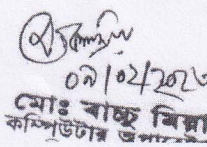 ০৯/০২/২০২৩
মোঃ বাচ্চু মিয়া
কম্পিউটার অপারেটর